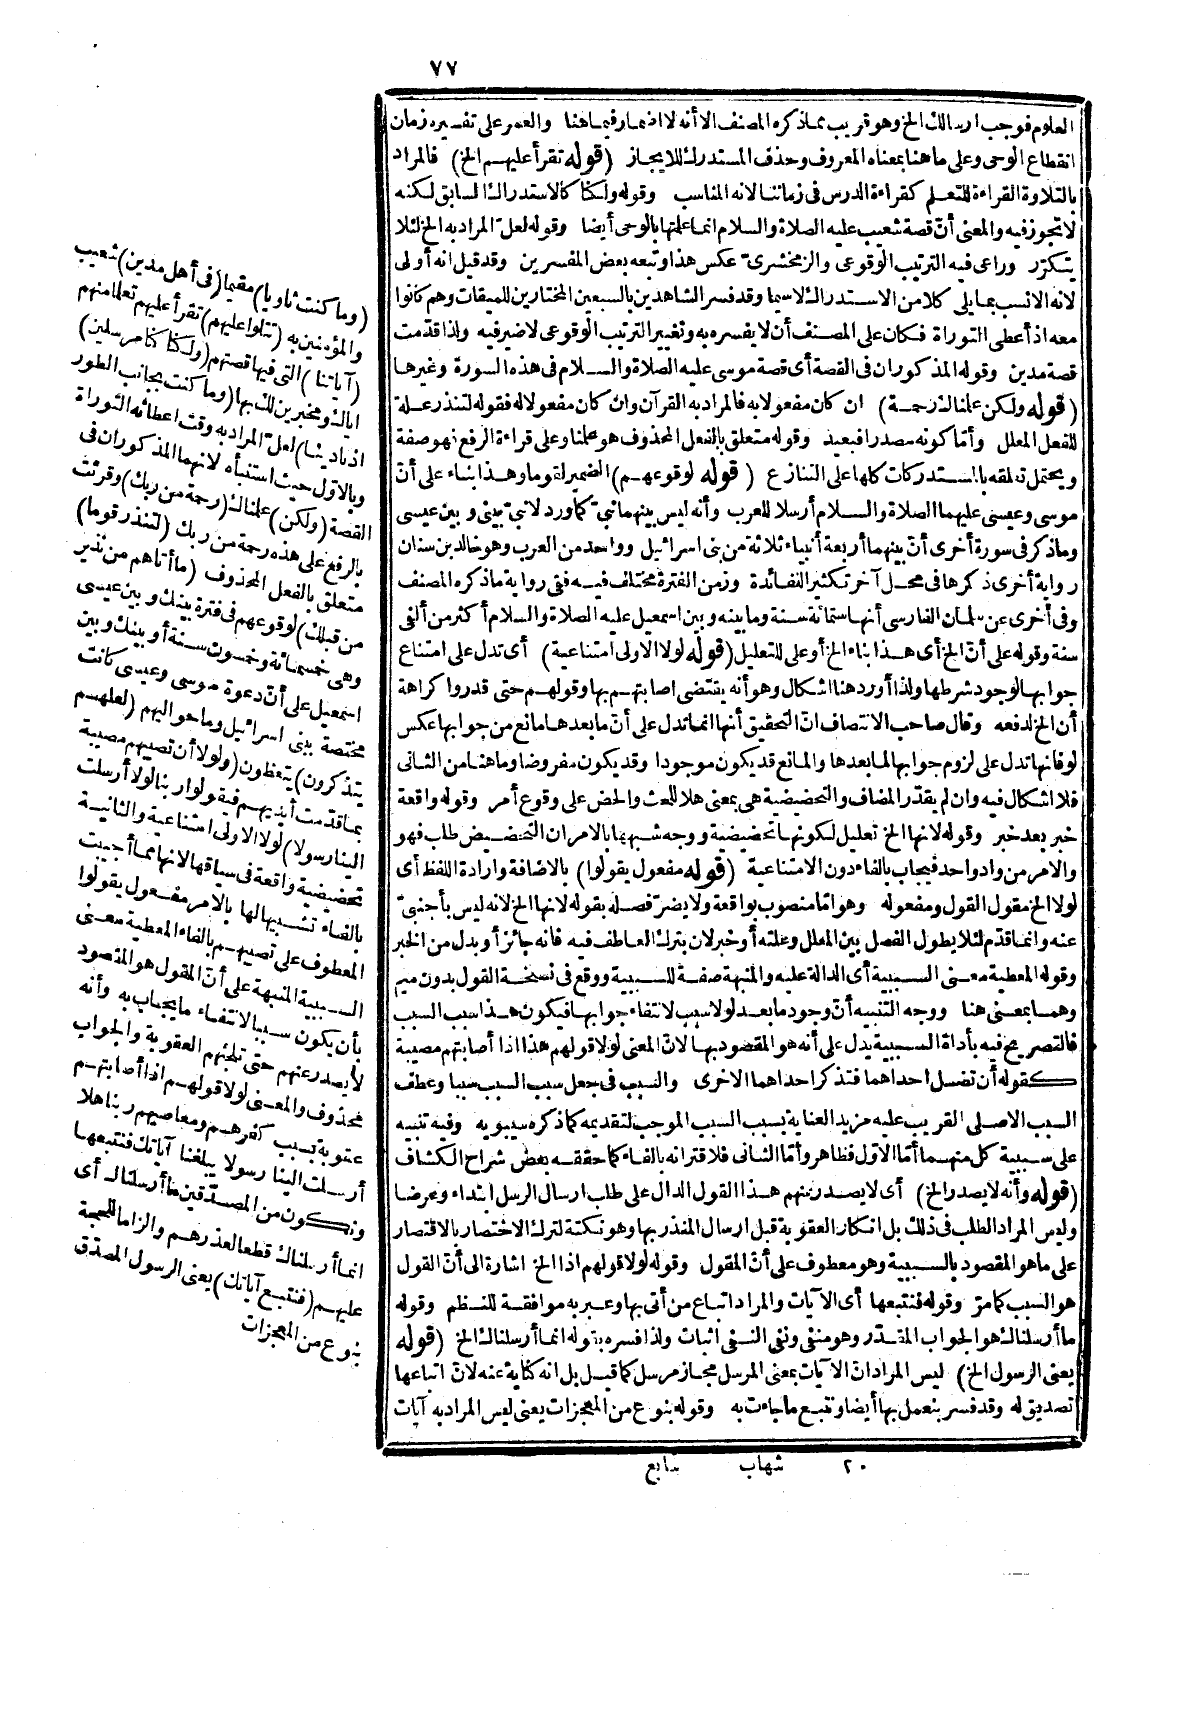 ٧٧
العلوم فوجب ارسالك الخ وهو قريب مما ذكره المصنف الا أنه لا اضمار فيما هنا والعمر على تفسيره زمان
انقطاع الوحى وعلى ما هنا بمعناه المعروف وحذف المستدرك للايجاز (قوله تقرأ عليهم الخ) فالمراد
بالتلاوة القراءة للتعلم كقراءة الدرس فى زماننا لانه المناسب وقوله ولكنا كالاستدراك السابق لكنه
لا تجوز فيه والمعنى أنّ قصة شعيب عليه الصلاة والسلام انما علمتها بالوحى أيضا وقوله لعلّ المراد به الخ لئلا
يتكرّر وراعى فيه الترتيب الوقوعى والزمخشرىّ عكس هذا وتبعه بعض المفسرين وقد قيل انه أولى
لانه الانسب بما يلى كلا من الاستدراك لاسيما وقد فسر الشاهدين بالسبعين المختارين للميقات وهم كانوا
معه اذ أعطى التوراة فكان على المصنف أن لا يفسره به وتغيير الترتيب الوقوعى لا ضير فيه ولذا قدّمت
قصة مدين وقوله المذكوران فى القصة أى قصة موسى عليه الصلاة والسلام فى هذه السورة وغيرها
(قوله ولكن علمناك رحمة) ان كان مفعولا به فالمراد به القرآن وان كان مفعولا له فقوله لتنذر علة
للفعل المعلل وأمّا كونه مصدرا فبعيد وقوله متعلق بالفعل المحذوف هو علمنا وعلى قراءة الرفع فهو صفة
ويحتمل تعلقه بالمستدركات كلها على التنازع (قوله لوقوعهم) الضمير لقوما وهذا بناء على أنّ
موسى وعيسى عليهما الصلاة والسلام أرسلا للعرب وأنه ليس بينهما نبىّ كما ورد لا نبىّ بينى وبين عيسى
وما ذكر فى سورة أخرى أنّ بينهما أربعة أنبياء ثلاثة من بنى اسرائيل وواحد من العرب وهو خالد بن سنان
رواية أخرى ذكرها فى محل آخر تكثيرا للفائدة وزمن الفترة مختلف فيه ففى رواية ما ذكره المصنف
وفى أخرى عن سلمان الفارسى أنها ستمائة سنة وما بينه وبين اسمعيل عليه الصلاة والسلام أكثر من ألفى
سنة وقوله على أنّ الخ أى هذا بناء الخ أو على للتعليل (قوله لولا الاولى امتناعية) أى تدل على امتناع
جوابها لوجود شرطها ولذا أورد هنا اشكال وهو أنه يقتضى اصابتهم بها وقولهم حتى قدروا كراهة
أن الخ لدفعه وقال صاحب الانتصاف انّ التحقيق أنها انما تدل على أنّ ما بعدها مانع من جوابها عكس
لو فانها تدل على لزوم جوابها لما بعدها والمانع قد يكون موجودا وقد يكون مفروضا وما هنا من الثانى
فلا اشكال فيه وان لم يقدّر المضاف والتحضيضية هى بمعنى هلا للحث والحض على وقوع أمر وقوله واقعة
خبر بعد خبر وقوله لانها الخ تعليل لكونها تحضيضية ووجه شبهها بالامر ان التحضيض طلب فهو
والامر من واد واحد فيجاب بالفاء دون الامتناعية (قوله مفعول يقولوا) بالاضافة وارادة اللفظ أى
لولا الخ مقول القول ومفعوله وهو امّا منصوب بواقعة ولا يضرّ فصله بقوله لانها الخ لانه ليس بأجنبىّ
عنه وانما قدّم لئلا يطول الفصل بين المعلل وعلته أو خبر لان بترك العاطف فيه فانه جائز أو بدل من الخبر
وقوله المعطية معنى السببية أى الدالة عليه والمنبهة صفة للسببية ووقع فى نسخة القول بدون ميم
وهما بمعنى هنا ووجه التنبيه أنّ وجود ما بعد لولا سبب لانتفاء جوابها فيكون هذا سبب السبب
فالتصريح فيه بأداة السببية يدل على أنه هو المقصود بها لانّ المعنى لولا قولهم هذا اذا أصابتهم مصيبة
كقوله أن تضل احداهما فتذكر احداهما الاخرى والسبب فى جعل سبب السبب سببا وعطف
السبب الاصلى القريب عليه مزيد العناية بسبب السبب الموجب لتقديمه كما ذكره سيبويه وفيه تنبيه
على سببية كل منهما أمّا الاول فظاهر وأمّا الثانى فلاقترانه بالفاء كما حققه بعض شراح الكشاف
(قوله وأنه لا يصدر الخ) أى لا يصدر منهم هذا القول الدال على طلب ارسال الرسل ابتداء وعرضا
وليس المراد الطلب فى ذلك بل انكار العقوبة قبل ارسال المنذر بها وهو نكتة لترك الاختصار بالاقتصار
على ما هو المقصود بالسببية وهو معطوف على أنّ المقول وقوله لولا قولهم اذا الخ اشارة الى أنّ القول
هو السبب كما مرّ وقوله فنتبعها أى الآيات والمراد اتباع من أتى بها وعبر به موافقة للنظم وقوله
ما أرسلناك هو الجواب المقدّر وهو منفى ونفى النفى اثبات ولذا فسره بقوله انما أرسلناك الخ (قوله
يعنى الرسول الخ) ليس المراد انّ الآيات بمعنى المرسل مجاز مرسل كما قيل بل انه كناية عنه لانّ اتباعها
تصديق له وقد فسر بنعمل بها أيضا ونتبع ما جاءت به وقوله بنوع من المعجزات يعنى ليس المراد به آيات
(وما كنت ثاويا) مقيما (فى أهل مدين) شعيب
والمؤمنين به (تتلوا عليهم) تقرأ عليهم تعلما منهم
(آياتنا) التى فيها قصتهم (ولكنا كنا مرسلين)
اياك ومخبرين لك بها (وما كنت بجانب الطور
اذ نادينا) لعلّ المراد به وقت اعطائه التوراة
وبالاول حيث استنبأه لانهما المذكوران فى
القصة (ولكن) علمناك (رحمة من ربك) وقرئت
بالرفع على هذه رحمة من ربك (لتنذر قوما)
متعلق بالفعل المحذوف (ما أتاهم من نذير
من قبلك) لوقوعهم فى فترة بينك وبين عيسى
وهى خمسمائة وخمسون سنة أو بينك وبين
اسمعيل على أنّ دعوة موسى وعيسى كانت
مختصة ببنى اسرائيل وما حواليهم (لعلهم
يتذكرون) يتعظون (ولولا أن تصيبهم مصيبة
بما قدّمت أيديهم فيقولوا ربنا لولا أرسلت
الينا رسولا) لولا الاولى امتناعية والثانية
تحضيضية واقعة فى سياقها لانها مما أجيبت
بالفاء تشبيها لها بالامر مفعول يقولوا
المعطوف على تصيبهم بالفاء المعطية معنى
السببية المنبهة على أنّ المقول هو المقصود
بأن يكون سببا لانتفاء ما يجاب به وأنه
لا يصدر عنهم حتى تلجئهم العقوبة والجواب
محذوف والمعنى لولا قولهم اذا أصابتهم
عقوبة بسبب كفرهم ومعاصيهم ربنا هلا
أرسلت الينا رسولا يبلغنا آياتك فنتبعها
ونكون من المصدّقين ما أرسلناك أى
انما أرسلناك قطعا لعذرهم والزاما للحجة
عليهم (فنتبع آياتك) يعنى الرسول المصدّق
بنوع من المعجزات
٢٠ شهاب سابع